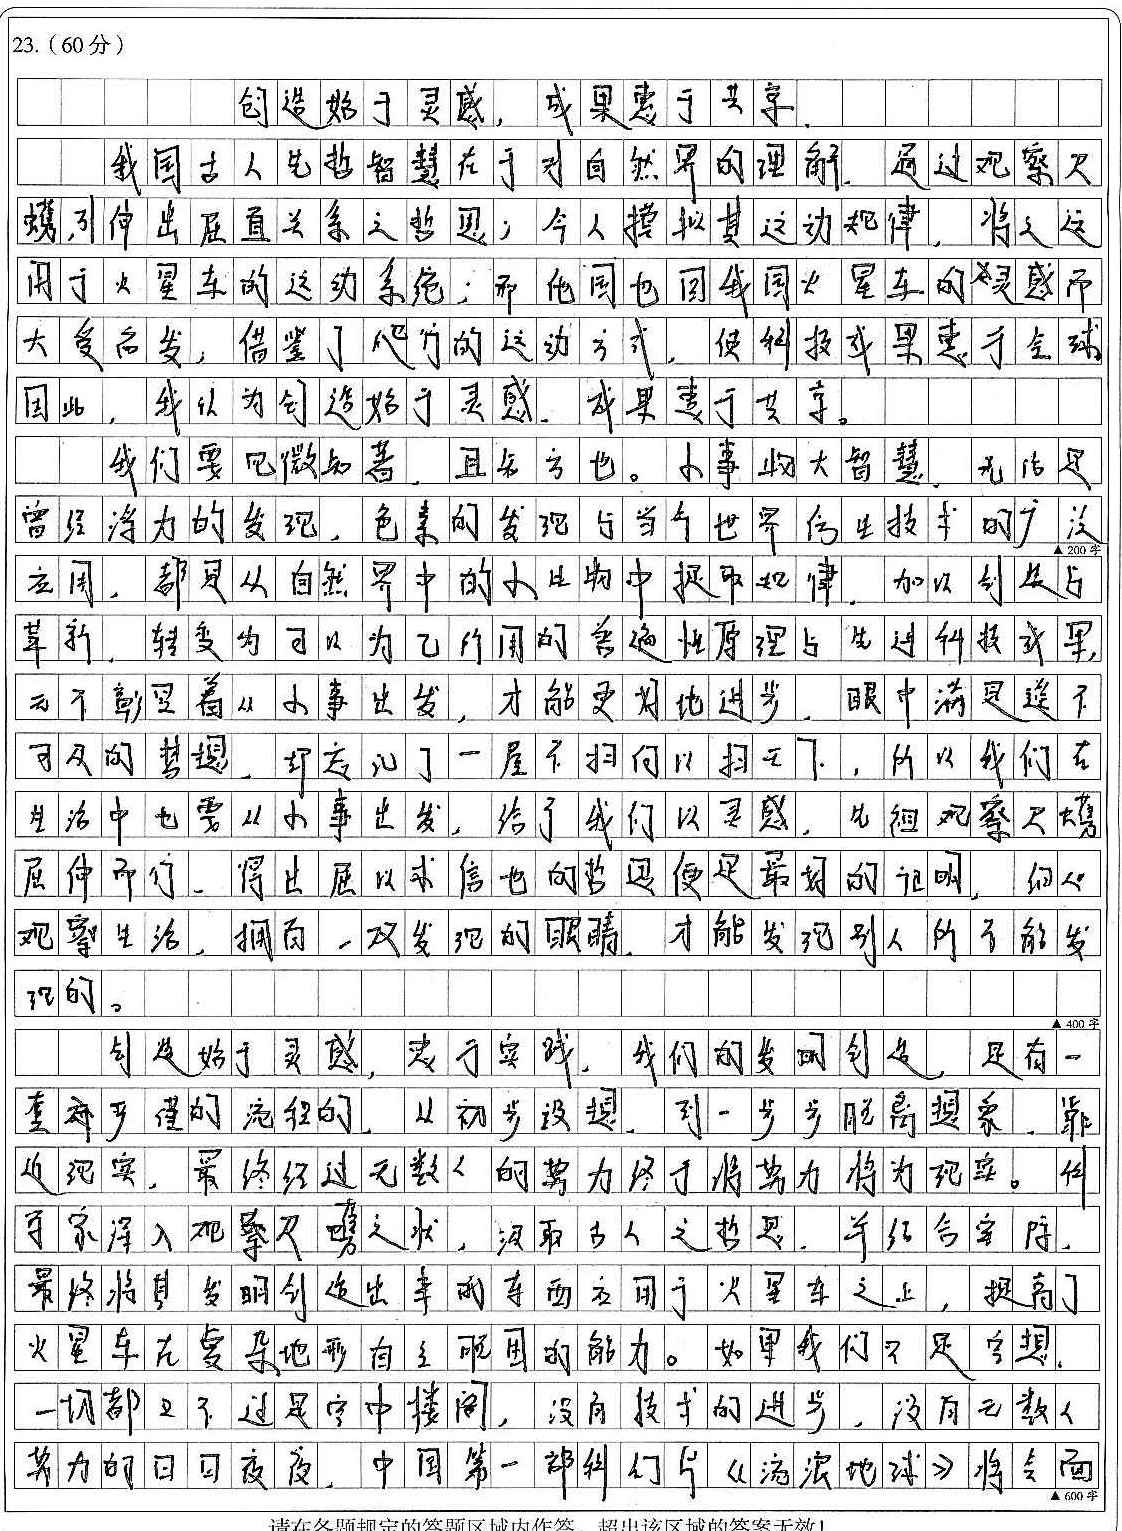 23.（60分）
创造始于灵感，成果惠于共享.
我国古人先哲智慧在于对自然界的理解.通过观察尺
蠖,引伸出屈直关系之哲思；今人摸拟其运动规律，将之运
用于火星车的运动系统；而他国也因我国火星车的灵感而
大受启发，借鉴了爬行的运动方式，使科技成果惠于全球
因此，我认为创造始于灵感.成果惠于共享。
我们要见微知著，且知方也。小事物大智慧.无论是
曾经浮力的发现，色素的发现与当今世界仿生技术的广泛
▲200字
应用，都是从自然界中的小生物中提取规律.加以创造与
革新，转变为可以为己所用的普遍性原理与先进科技成果，
无不彰显着从小事出发，才能更好地进步.眼中满是遥不
可及的梦想，却忘记了一屋不扫何以扫天下，所以我们在
生活中也要从小事出发，给予我们以灵感，先祖观察尺蠖
屈伸而行.得出屈以求信也的哲思便是最好的证明，细心
观察生活，拥有一双发现的眼睛，才能发现别人所不能发
现的。
▲400字
创造始于灵感，忠于实践.我们的发明创造，是有一
套严谨的流程的，从初步设想，到一步步脱离想象，靠
近现实，最终经过无数人的努力终于将努力将为现实。科
学家深入观察尺蠖之状，汲取古人之哲思，并结合实际，
最终将其发明创造出来的东西应用于火星车之上，提高了
火星车在复杂地形自主脱困的能力。如果我们只是空想，
一切都只不过是空中楼阁，没有技术的进步，没有无数人
努力的日日夜夜，中国第一部科幻片《流浪地球》将会面
▲600字
请在各题规定的答题区域内作答，超出该区域的答案无效！